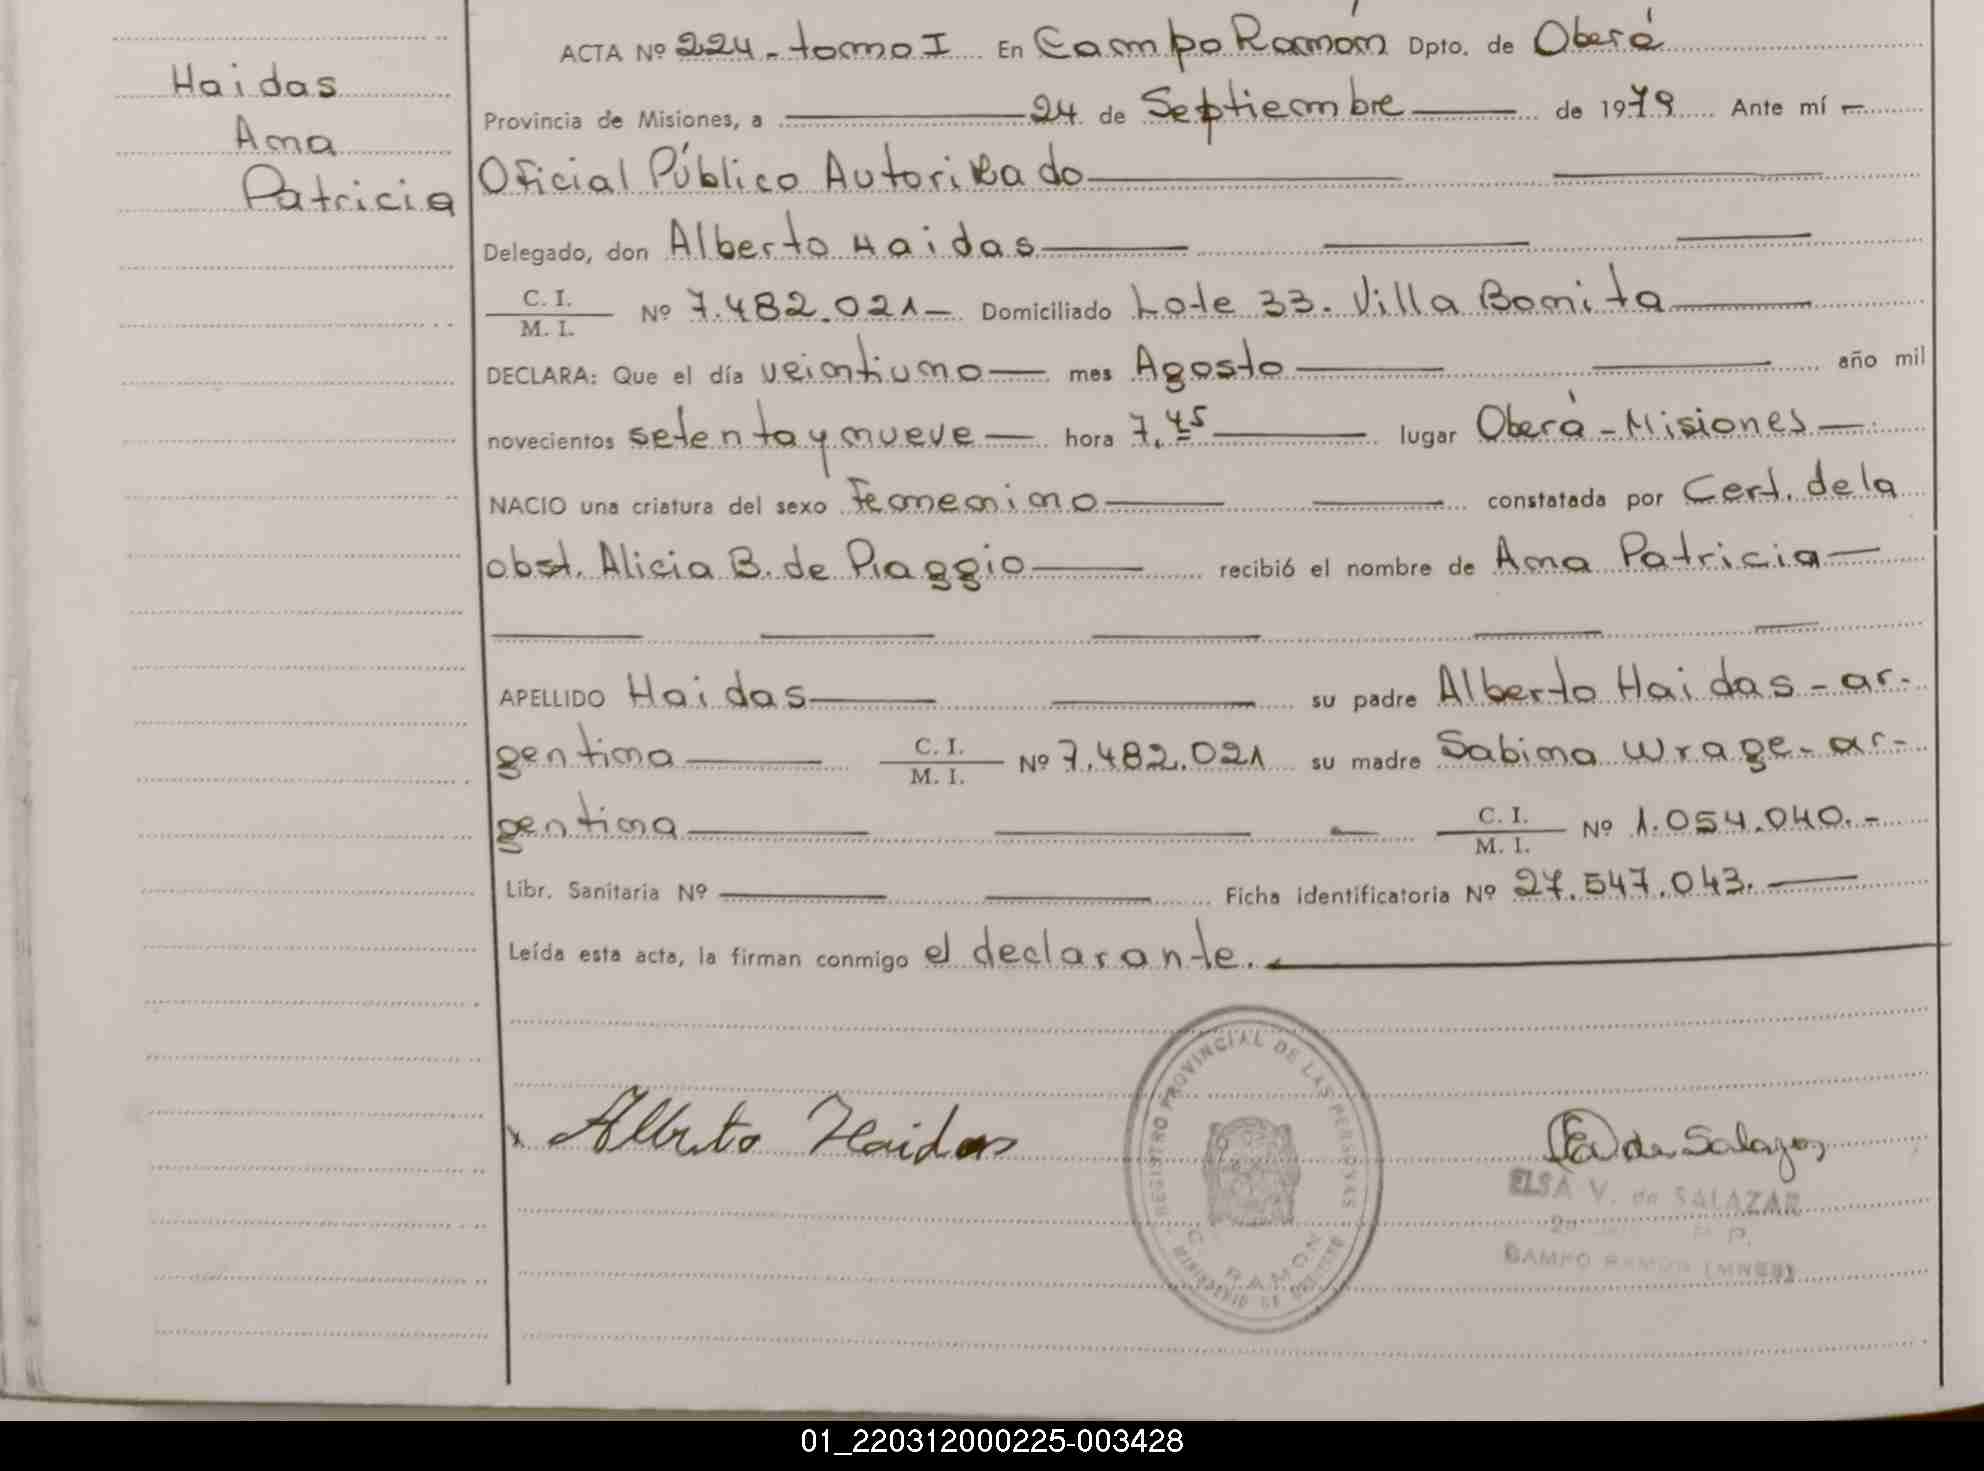 Haidas
Ana
Patricia
ACTA Nº 224 - tomo I En Campo Ramón Dpto. de Oberá
Provincia de Misiones, a 24 de Septiembre de 1979 Ante mí
Oficial Público Autorizado
Delegado, don Alberto Haidas
C. I.
M. I. Nº 7.482.021 - Domiciliado Lote 33. Villa Bonita
DECLARA: Que el día veintiuno mes Agosto año mil
novecientos setenta y nueve hora 7.45 lugar Oberá - Misiones
NACIO una criatura del sexo Femenino constatada por Cert. de la
obst. Alicia B. de Piaggio recibió el nombre de Ana Patricia
APELLIDO Haidas su padre Alberto Haidas - ar-
gentino C. I.
M. I. Nº 7.482.021 su madre Sabina Wrage - ar-
gentina C. I.
M. I. Nº 1.054.040. -
Libr. Sanitaria Nº Ficha identificatoria Nº 27.547.043.
Leída esta acta, la firman conmigo el declarante.
Alberto Haidas
REGISTRO PROVINCIAL DE LAS PERSONAS
C. RAMON
MINISTERIO DE GOBIERNO
de Salazar
ELSA V. de SALAZAR
CAMPO RAMON (MNES)
01_220312000225-003428